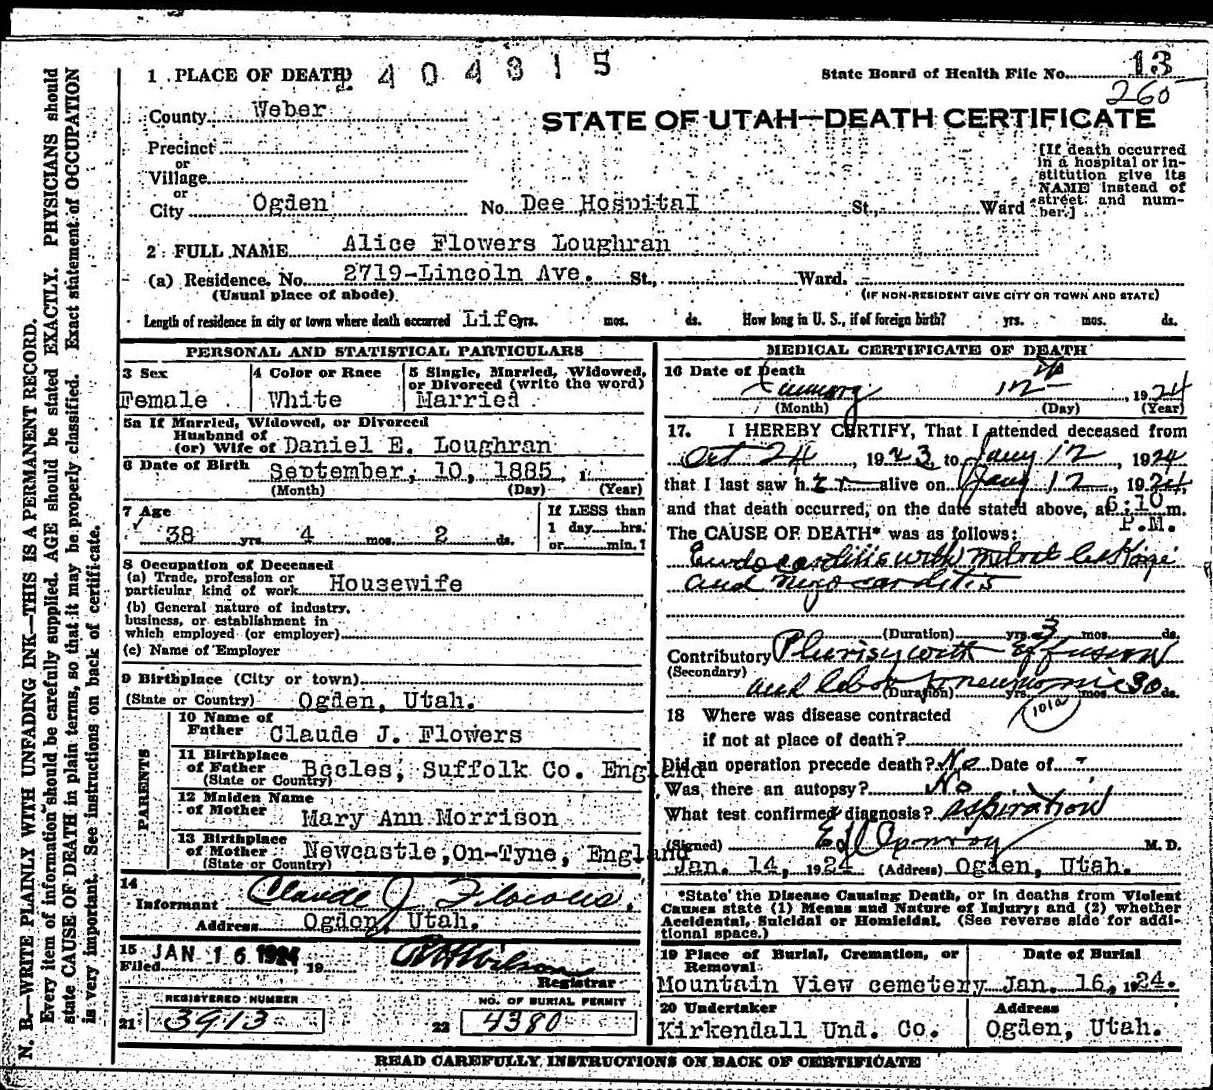 1 PLACE OF DEATH 2 4 0 4 3 1 5
State Board of Health File No. 13
260
County Weber
STATE OF UTAH—DEATH CERTIFICATE
Precinct
or
Village
or
City Ogden No. Dee Hospital St., Ward
[If death occurred
in a hospital or in-
stitution give its
NAME instead of
street and num-
ber.]
2 FULL NAME Alice Flowers Loughran
(a) Residence, No. 2719-Lincoln Ave. St., Ward.
(Usual place of abode) (IF NON-RESIDENT GIVE CITY OR TOWN AND STATE)
Length of residence in city or town where death occurred Life yrs. mos. ds. How long in U. S., if of foreign birth? yrs. mos. ds.
PERSONAL AND STATISTICAL PARTICULARS
3 Sex
Female
4 Color or Race
White
5 Single, Married, Widowed,
or Divorced (write the word)
Married
5a If Married, Widowed, or Divorced
Husband of
(or) Wife of Daniel E. Loughran
6 Date of Birth September, 10, 1885, 1
(Month) (Day) (Year)
7 Age
38 yrs. 4 mos. 2 ds.
If LESS than
1 day hrs.
or min.?
8 Occupation of Deceased
(a) Trade, profession or
particular kind of work Housewife
(b) General nature of industry,
business, or establishment in
which employed (or employer)
(c) Name of Employer
9 Birthplace (City or town)
(State or Country) Ogden, Utah.
PARENTS
10 Name of
Father Claude J. Flowers
11 Birthplace
of Father Bccles, Suffolk Co. England
(State or Country)
12 Maiden Name
of Mother Mary Ann Morrison
13 Birthplace
of Mother Newcastle,On-Tyne, England
(State or Country)
14
Informant Claude J. Flowers,
Address Ogden, Utah.
15 JAN 16 1924
Filed , 19 Wilson
Registrar
REGISTERED NUMBER
21 3913
NO. OF BURIAL PERMIT
22 4380
MEDICAL CERTIFICATE OF DEATH
16 Date of Death
January 12 , 1924
(Month) (Day) (Year)
17. I HEREBY CERTIFY, That I attended deceased from
Oct 24 , 1923, to Jany 12 , 1924
that I last saw her alive on Jany 12 , 1924,
and that death occurred, on the date stated above, at 6:10 m.
P.M.
The CAUSE OF DEATH* was as follows:
Endocarditis with mitral leakage
and myocarditis
(Duration) yrs. 3 mos. ds.
Contributory Plurisy with effusion
(Secondary)
and lobar pneumonia
(Duration) yrs. mos. 30 ds.
101a
18 Where was disease contracted
if not at place of death?
Did an operation precede death? No Date of -
Was there an autopsy? No
What test confirmed diagnosis? aspiration
(Signed) M. D.
Jan. 14, 1924 (Address) Ogden, Utah.
*State the Disease Causing Death, or in deaths from Violent
Causes state (1) Means and Nature of Injury; and (2) whether
Accidental, Suicidal or Homicidal. (See reverse side for addi-
tional space.)
19 Place of Burial, Cremation, or
Removal
Mountain View cemetery
Date of Burial
Jan. 16, 1924.
20 Undertaker
Kirkendall Und. Co.
Address
Ogden, Utah.
READ CAREFULLY INSTRUCTIONS ON BACK OF CERTIFICATE
N. B.—WRITE PLAINLY WITH UNFADING INK—THIS IS A PERMANENT RECORD.
Every item of information should be carefully supplied. AGE should be stated EXACTLY. PHYSICIANS should
state CAUSE OF DEATH in plain terms, so that it may be properly classified. Exact statement of OCCUPATION
is very important. See instructions on back of certificate.